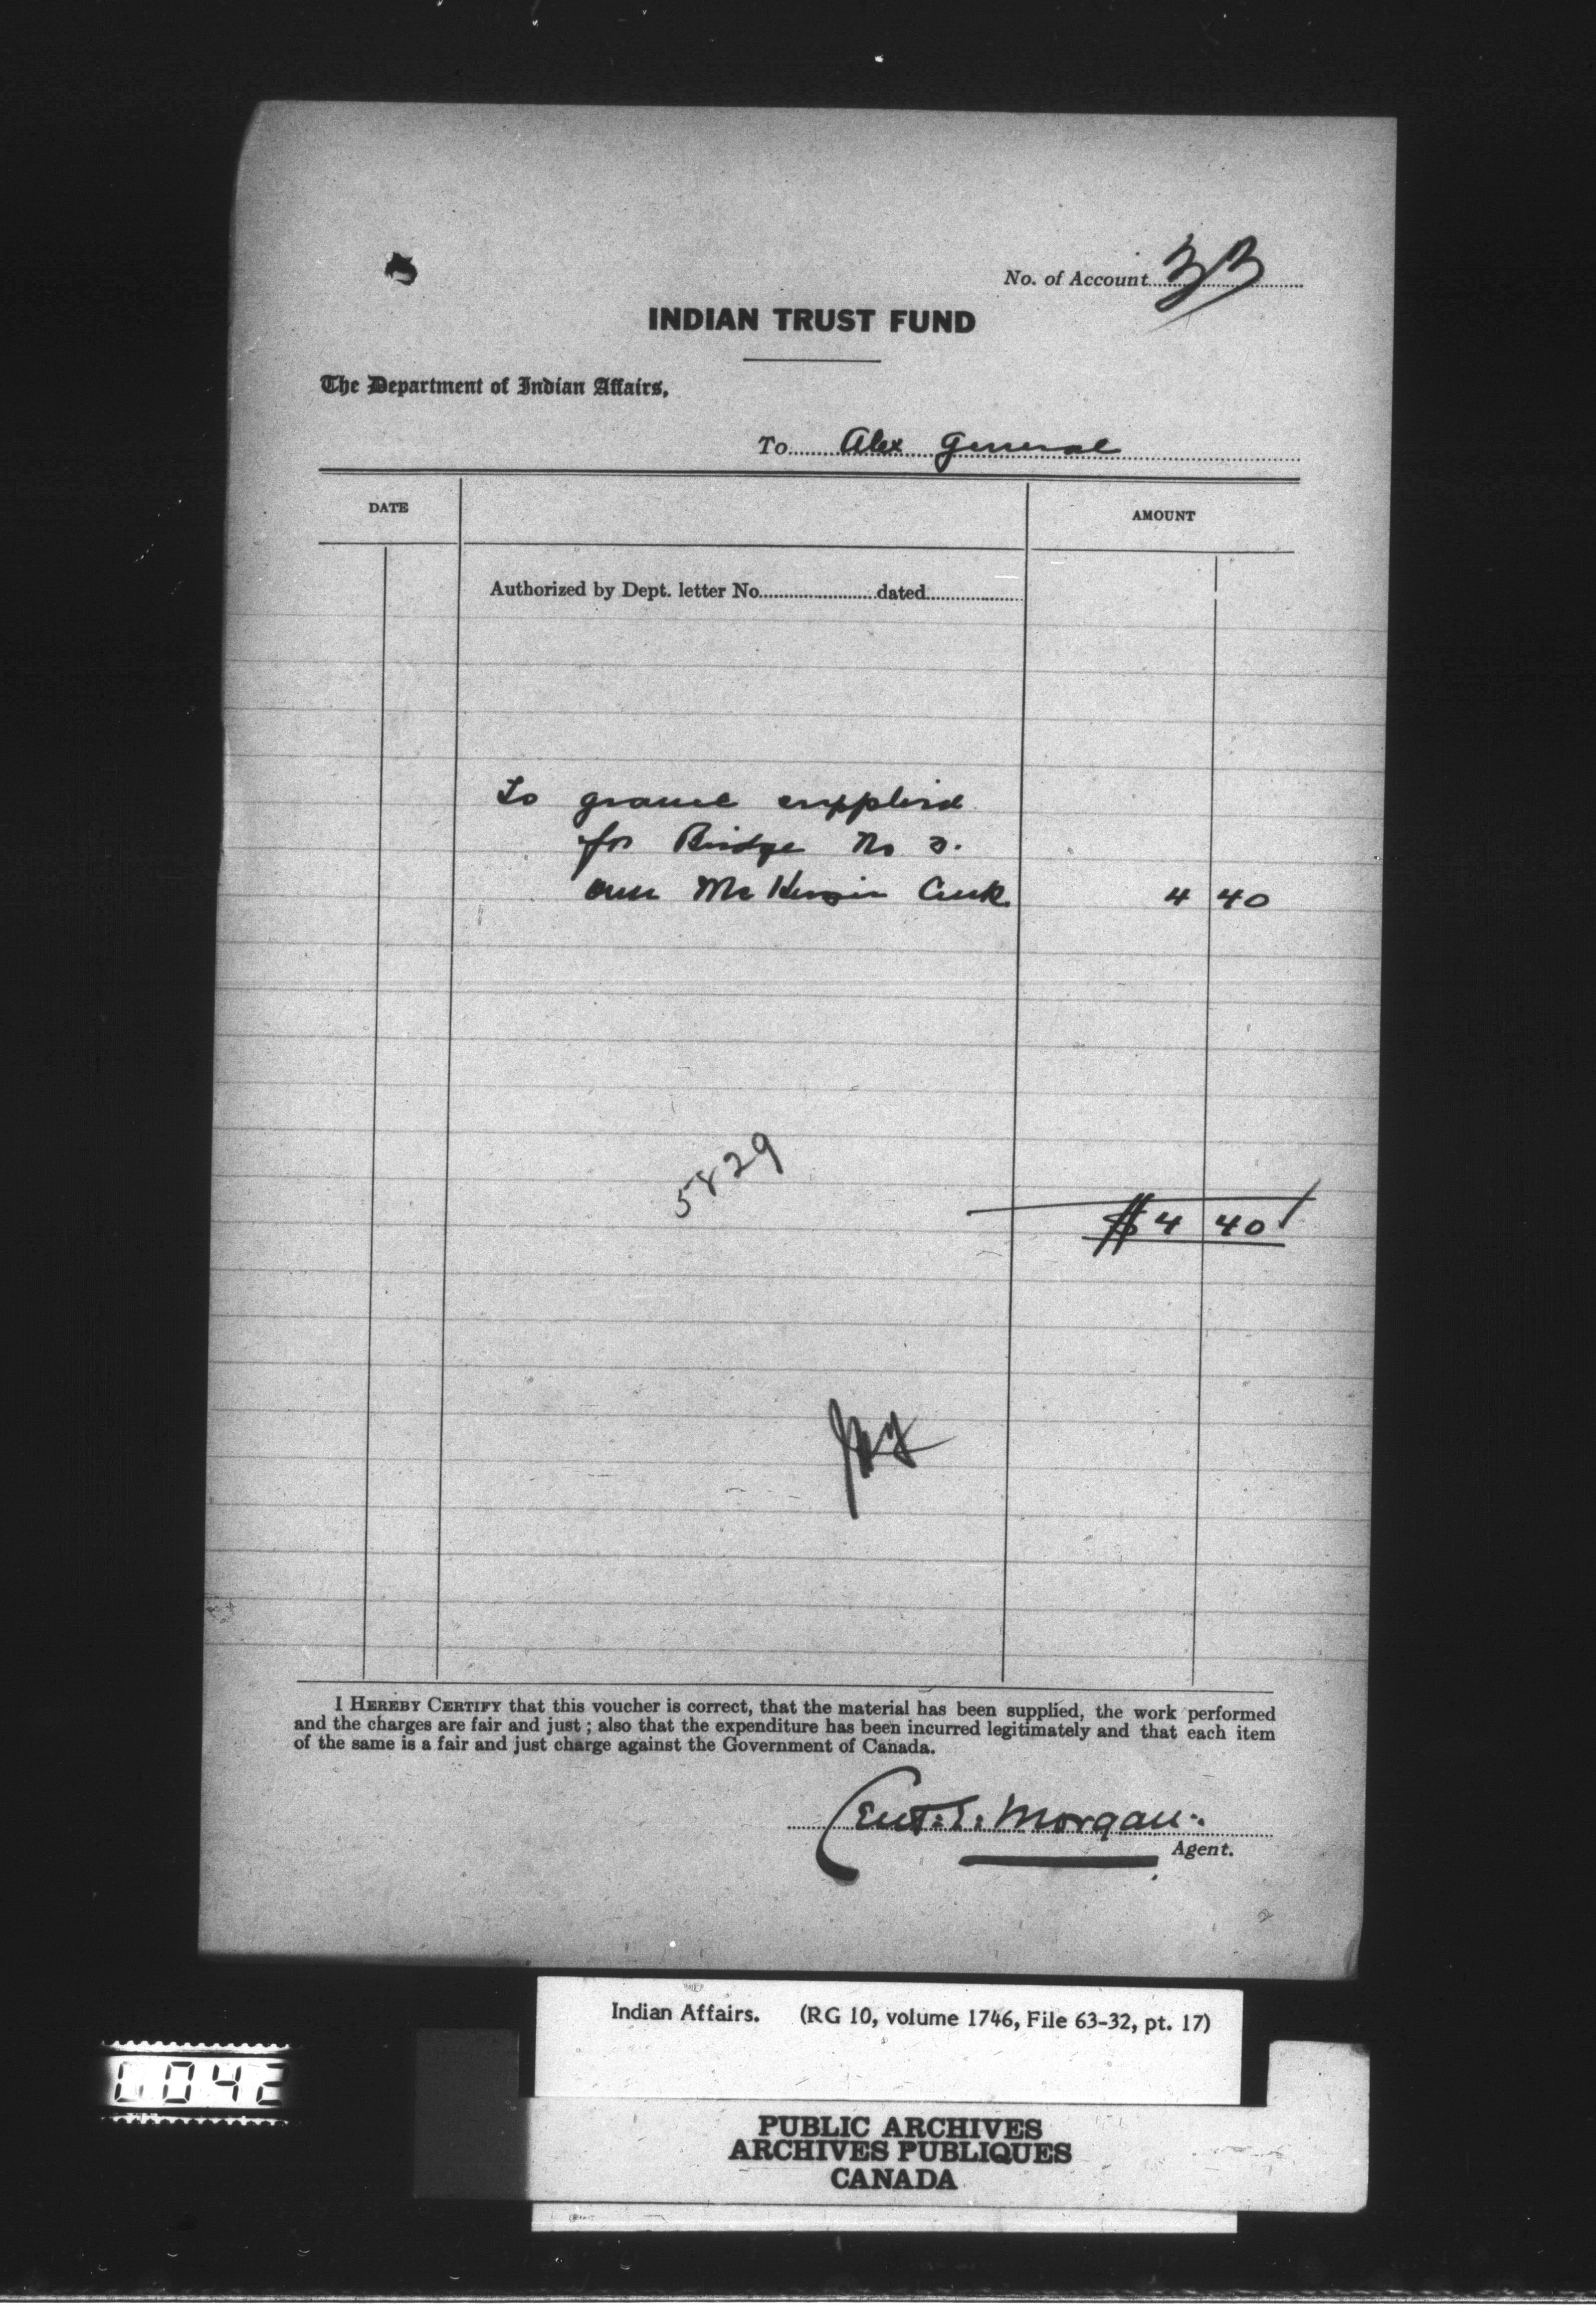 No. of Account 33
INDIAN TRUST FUND
The Department of Indian Affairs,
To Alex General
DATE
AMOUNT
Authorized by Dept. letter No. dated
To gravel supplied
for Bridge No
over McKenzie Creek. 4 40
5829
$4 40
I HEREBY CERTIFY that this voucher is correct, that the material has been supplied, the work performed
and the charges are fair and just; also that the expenditure has been incurred legitimately and that each item
of the same is a fair and just charge against the Government of Canada.
E. Morgan
Agent.
Indian Affairs. (RG 10, volume 1746, File 63-32, pt. 17)
0042
PUBLIC ARCHIVES
ARCHIVES PUBLIQUES
CANADA